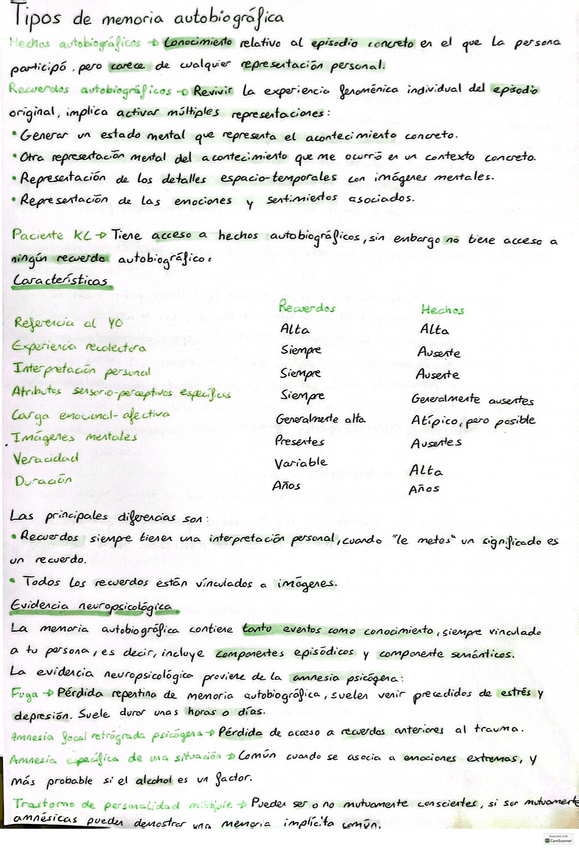 Tipos de memoria autobiográfica
Hechos autobiográficos → Conocimiento relativo al episodio concreto en el que la persona
participó, pero carece de cualquier representación personal.
Recuerdos autobiográficos → Revivir la experiencia fenoménica individual del episodio
original, implica activar múltiples representaciones:
• Generar un estado mental que representa el acontecimiento concreto.
• Otra representación mental del acontecimiento que me ocurrió en un contexto concreto.
• Representación de los detalles espacio-temporales con imágenes mentales.
• Representación de las emociones y sentimientos asociados.
Paciente KL → Tiene acceso a hechos autobiográficos, sin embargo no tiene acceso a
ningún recuerdo autobiográfico.
Características
Recuerdos Hechos
Referencia al YO Alta Alta
Experiencia recolectora Siempre Ausente
Interpretación personal Siempre Ausente
Atributos sensorio-perceptivos específicos Siempre Generalmente ausentes
Carga emocional-afectiva Generalmente alta Atípico, pero posible
Imágenes mentales Presentes Ausentes
Veracidad Variable Alta
Duración Años Años
Las principales diferencias son:
• Recuerdos siempre tienen una interpretación personal, cuando "le metes" un significado es
un recuerdo.
• Todos los recuerdos están vinculados a imágenes.
Evidencia neuropsicológica
La memoria autobiográfica contiene tanto eventos como conocimiento, siempre vinculado
a tu persona, es decir, incluye componentes episódicos y componente semánticos.
La evidencia neuropsicológica proviene de la amnesia psicógena:
Fuga → Pérdida repentina de memoria autobiográfica, suelen venir precedidos de estrés y
depresión. Suele durar unas horas o días.
Amnesia focal retrógrada psicógena → Pérdida de acceso a recuerdos anteriores al trauma.
Amnesia específica de una situación → Común cuando se asocia a emociones extremas, y
más probable si el alcohol es un factor.
Trastorno de personalidad múltiple → Pueden ser o no mutuamente conscientes, si son mutuamente
amnésicas pueden demostrar una memoria implícita común.
CamScanner